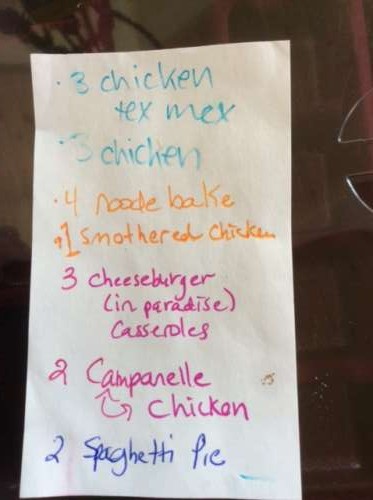 · 3 chicken
tex mex
· 3 chicken
· 4 noode bake
· 1 smothered chicken
3 cheeseburger
(in paradise)
casseroles
2 Campanelle
↳ chicken
2 Spaghetti Pie